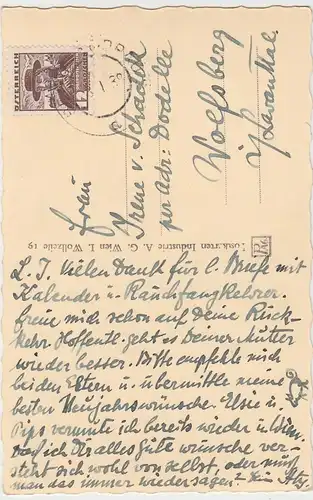 ÖSTERREICH
12
Frau
Irene v. Schadek
per adr: Dordelle
Wolfsberg
Lavanttal.
Postkarten Industrie A. G. Wien I. Wollzeile 19
L. I. Vielen Dank für l. Brief mit
Kalender u. Rauchfangkehrer.
freue mich schon auf Deine Rück-
kehr. Hoffentl. geht es Deiner Mutter
wieder besser. Bitte empfehle mich
beiden Eltern u. übermittle meine
besten Neujahrswünsche. Elsie u.
Pips vermute ich bereits wieder in Wien.
Daß ich Dir alles Gute wünsche ver-
steht sich wohl von selbst, oder muß
man das immer wieder sagen?